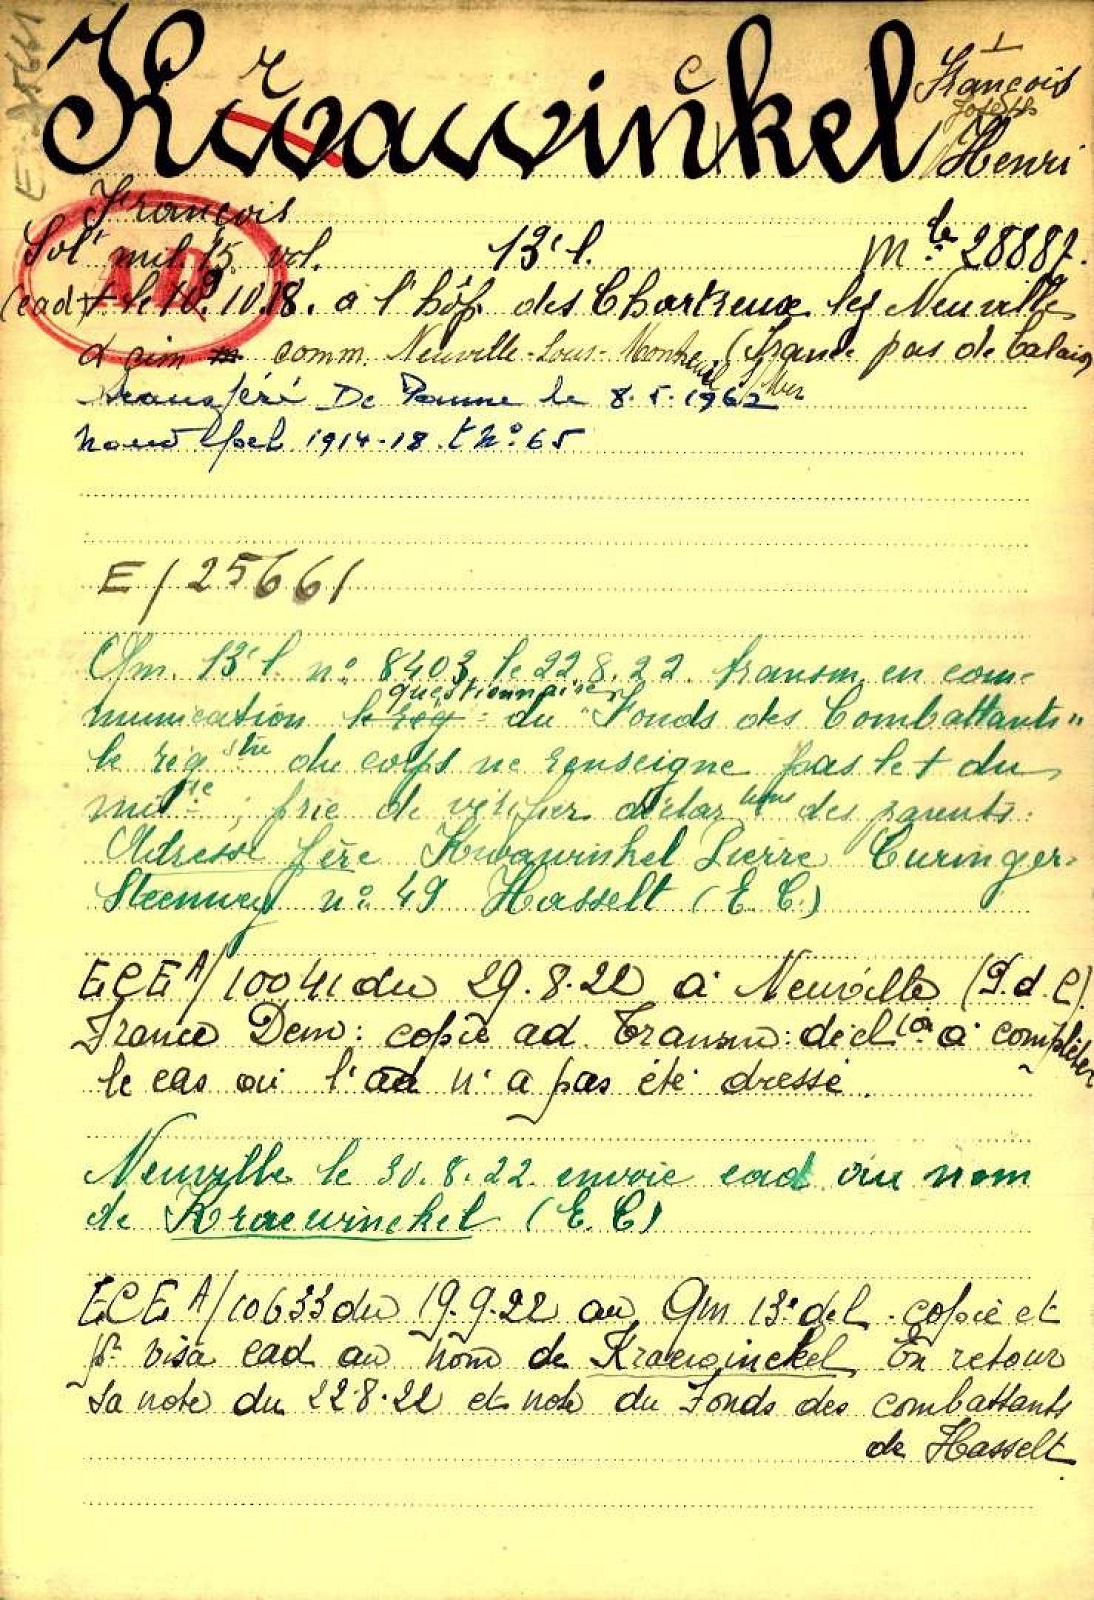 E 25661
Kwawinkel
r c
1
François
Joseph
Henri
François
Solt mil 15 vol. 13e l. Mle 28887.
(ead) + le 10.10.18. à l'hôp. des Chartreux les Neuville
d cim comm. Neuville-Sous-Montreuil s/Mer (France pas de Calais)
transféré De Panne le 8.5.1962
1914-18 t no 65
E/25661
Qm. 13e l. no 8403 le 22.8.22. transm. en com-
munication le reg questionnaire du "Fonds des Combattants"
le regstre du corps ne renseigne pas le + du
milre; prie de vérifier déclartions des parents.
Adresse père Kwawinkel Pierre Curinger-
Steenweg no 49 Hasselt (E.C.)
ECE A/10041 du 29.8.22 à Neuville (P.d.C.)
France Dem: copie ad. Transm: déclon à compléter
le cas où l'ad n'a pas été dressé.
Neuville le 30.8.22 envoie ead au nom
de Kraewinckel (E.C)
ECE A/10633 du 19.9.22 au Qm 13e de l. copie et
pr visa ead au nom de Kraewinckel. En retour
sa note du 22.8.22 et note du Fonds des combattants
de Hasselt.